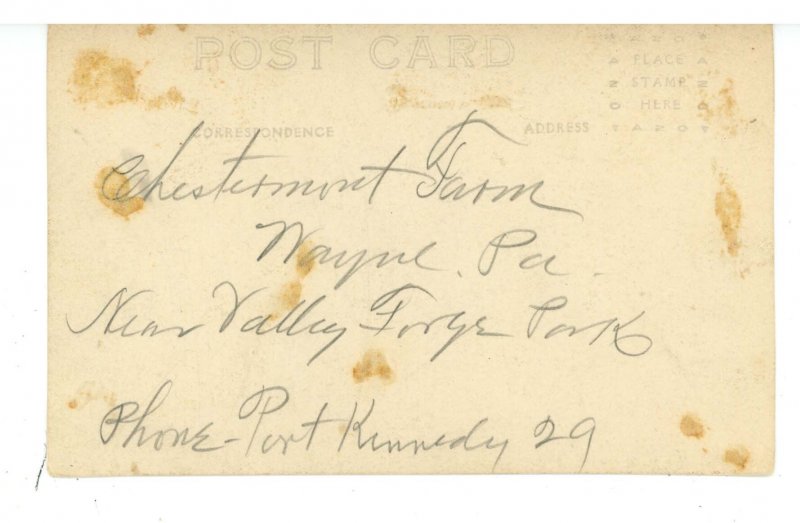 POST CARD
AZO
PLACE
STAMP
HERE
AZO
CORRESPONDENCE
ADDRESS
Chestermont Farm
Wayne. Pa.
Near Valley Forge Park
Phone - Port Kennedy 29